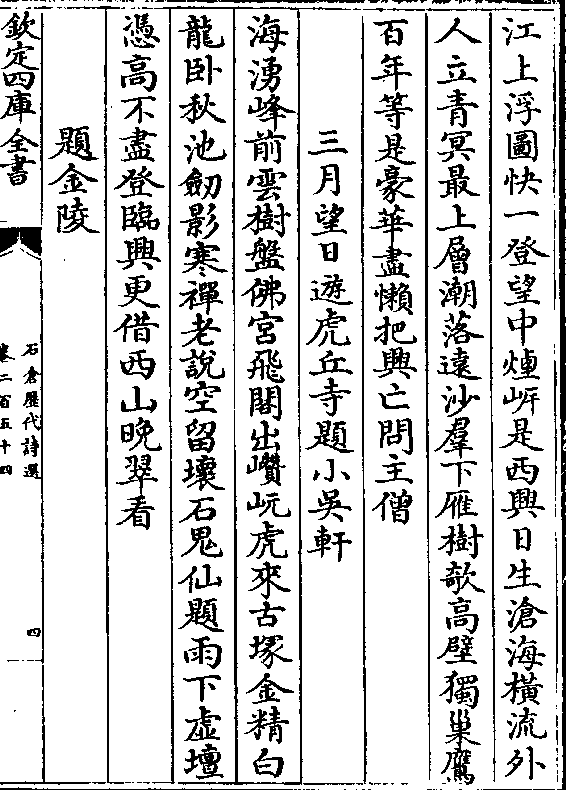 江上浮圖快一登望中煙㟁是西興日生滄海橫流外
人立青冥最上層潮落遠沙羣下雁樹欹高壁獨巢鷹
百年等是豪華盡懶把興亡問主僧
三月望日遊虎丘寺題小吳軒
海湧峰前雲樹盤佛宮飛閣出巑岏虎來古塚金精白
龍卧秋池劒影寒禪老說空留壞石鬼仙題雨下虛壇
憑高不盡登臨興更借西山晚翠看
題金陵
欽定四庫全書
石倉歷代詩選
卷二百五十四
四